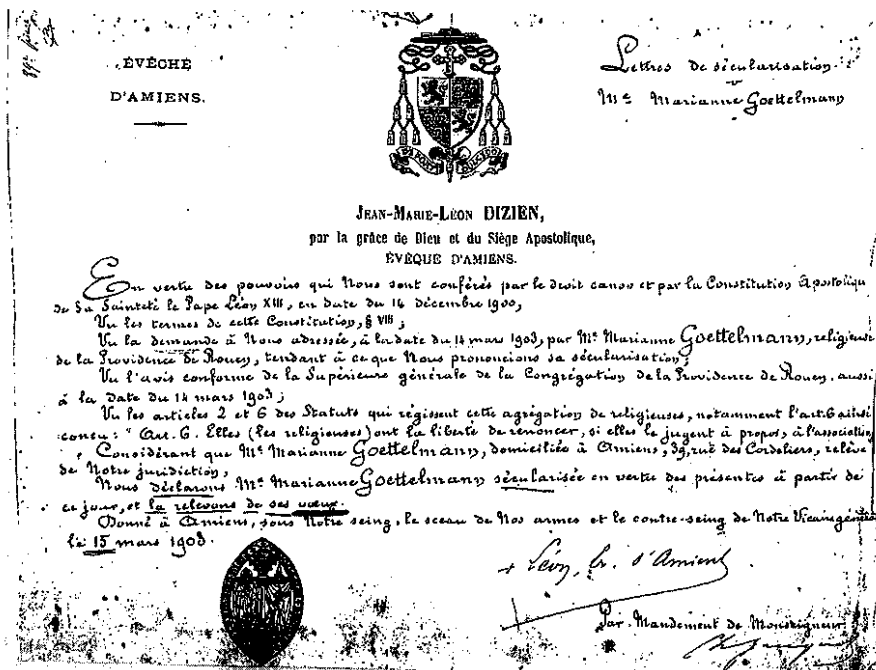 ÉVÊCHÉ
D'AMIENS.
Lettres de sécularisation
à
Me Marianne Goettelmann
JEAN-MARIE-LÉON DIZIEN,
par la grâce de Dieu et du Siège Apostolique,
ÉVÊQUE D'AMIENS.
En vertu des pouvoirs qui Nous sont conférés par le droit canon et par la Constitution Apostolique
de Sa Sainteté le Pape Léon XIII, en date du 16 décembre 1900,
Vu les termes de cette Constitution, § VIII ;
Vu la demande à Nous adressée, à la date du 14 mars 1903, par Me Marianne Goettelmann, religieuse
de la Providence de Rouen, tendant à ce que Nous prononcions sa sécularisation ;
Vu l'avis conforme de la Supérieure générale de la Congrégation de la Providence de Rouen, aussi
à la date du 14 mars 1903 ;
Vu les articles 2 et 6 des Statuts qui régissent cette agrégation de religieuses, notamment l'art. 6 ainsi
conçu : " Art. 6. Elles (les religieuses) ont la liberté de renoncer, si elles le jugent à propos, à l'association
Considérant que Me Marianne Goettelmann, domiciliée à Amiens, 39, rue des Cordeliers, relève
de Notre juridiction,
Nous déclarons Me Marianne Goettelmann sécularisée en vertu des présentes à partir de
ce jour, et la relevons de ses vœux.
Donné à Amiens, sous Notre seing, le sceau de Nos armes et le contre-seing de Notre Vicaire général
le 15 mars 1903.
+ Léon, év. d'Amiens
Par Mandement de Monseigneur